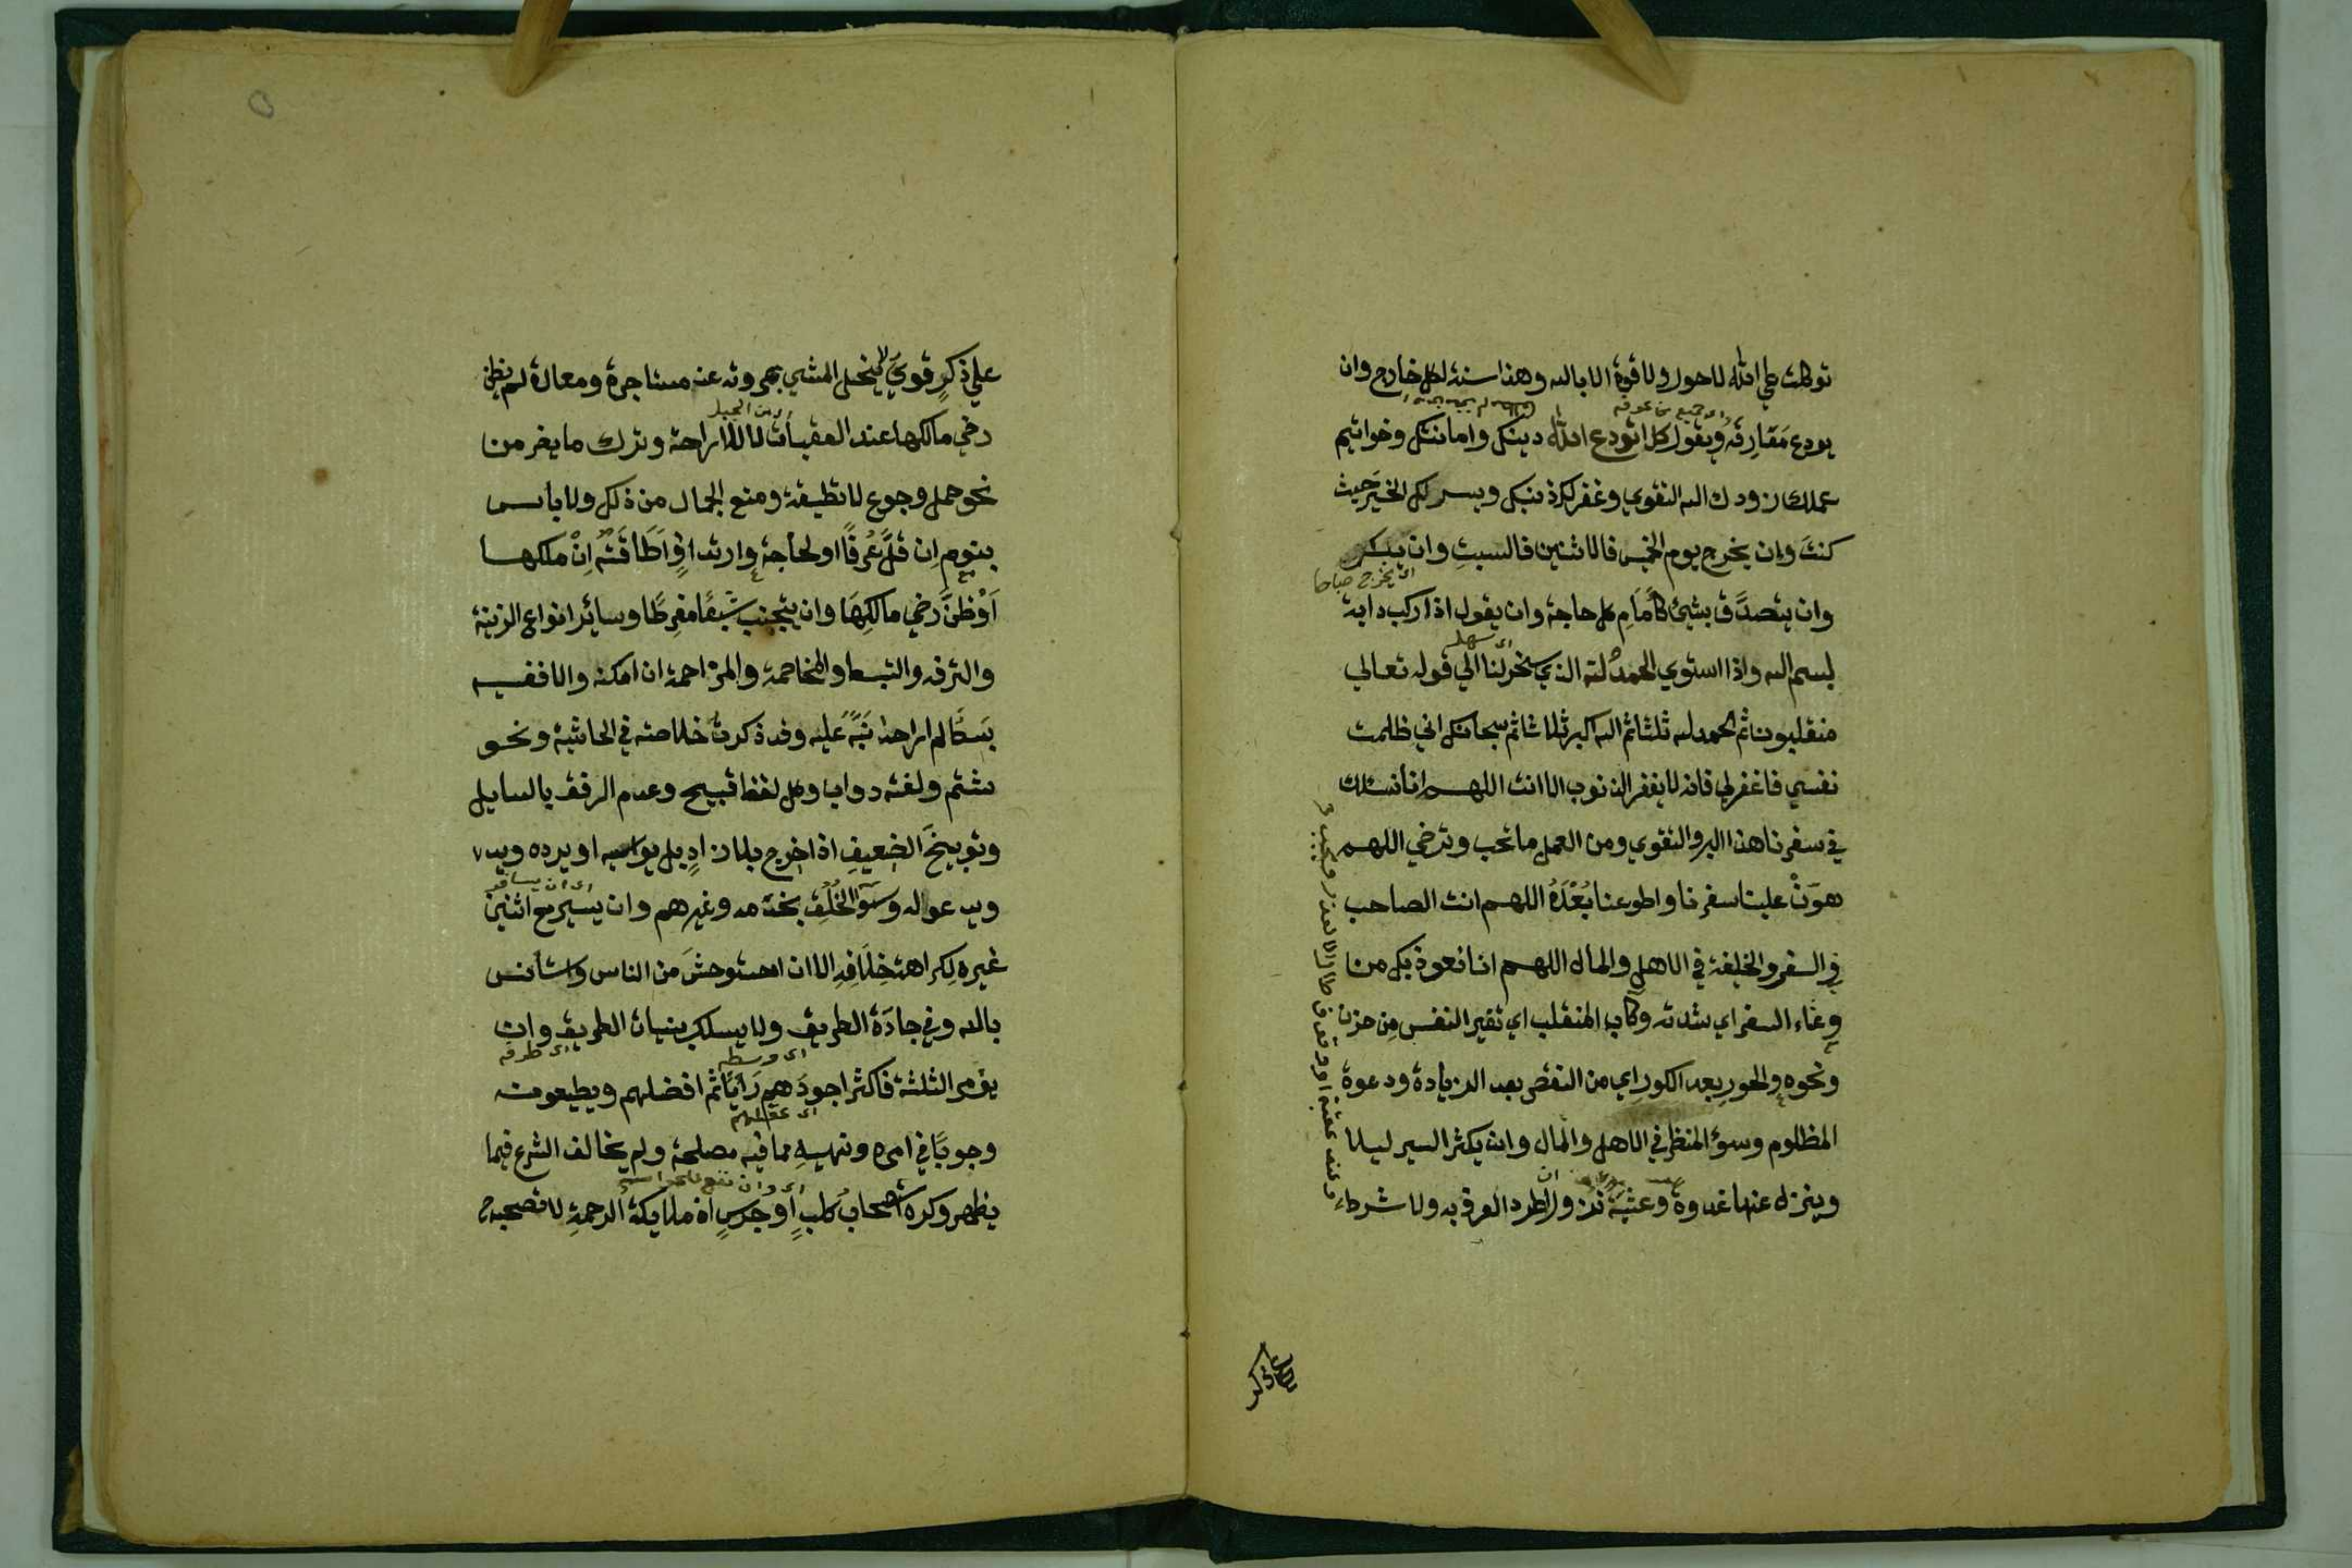 توكلت على الله لا حول ولا قوة الا بالله وهذا سنة لكل خارج وان
اي جميع من عرفه
يودع مفارقه ويقول كل استودع الله دينك وامانتك وخواتيم
عملك زودك الله التقوي وغفر لك ذنبك ويسر لك الخير حيث
كنت وان يخرج يوم الخميس فالاثنين فالسبت وان يبكر
اي يخرج صباحا
وان يتصدق بشئ كأمام كل حاجة وان يقول اذا ركب دابة
اي سهل
بسم الله واذا استوي الحمد لله الذي سخر لنا الي قوله تعالي
منقلبون ثم الحمد لله ثلثا ثم الله اكبر ثلاثا ثم سبحانك اني ظلمت
نفسي فاغفر لي فانه لا يغفر الذنوب الا انت اللهم انا نسئلك
في سفرنا هذا البر والتقوي ومن العمل ما تحب وترضي اللهم
هون علينا سفرنا واطو عنا بعده اللهم انت الصاحب
في السفر والخليفة في الاهل والمال اللهم انا نعوذ بك من
وعثاء السفر اي شدته وكآبة المنقلب اي تغير النفس من حزن
ونحوه والحور بعد الكور اي من النقص بعد الزيادة ودعوة
المظلوم وسؤ المنظر في الاهل والمال وان يكثر السير ليلا
وينزل عنها غدوة وعشية ندبا ان اطرد العرف به ولا شرط
علي ذكر
علي ذكر قوي لا يخل المشي بمروته عن مستاجرة ومعارة لم يظن
من الجبل
رضي مالكها عند العقبات لا للاراحة وترك ما يضر من
نحو حمل وجوع لا تطيقه ومنع الجمال من ذلك ولا بأس
بنوم ان قل عرفا او لحاجة وارتداف اطاقته ان ملكها
او ظن رضي مالكها وان يتجنب شبعا مفرطا وسائر انواع الزينة
والترفه والتبسط والمخاصمة والمزاحمة ان امكنه والا ففيه
بسط لم ار احدا نبه عليه وقد ذكرت خلاصته في الحاشية ونحو
شتم ولعنة دواب وكل لفظ قبيح وعدم الرفق بالسايل
وتوبيخ الضعيف اذا خرج بلا زاد بل يواسيه او يرده ويد
اي ان يسافر
ويدعو له وسوء الخلق بخدمه وغيرهم وان يسير مع اثنين
غيره لكراهة خلافه الا ان استوحش من الناس واستأنس
بالله وفي جادة الطريق ولا يسلك بنيات الطريق وان
اي وسطه اي طرقه
يؤمر الثلثة فاكثر اجودهم رأيا ثم افضلهم ويطيعونه
اي عقلهم
وجوبا في امره ونهيه مما فيه مصلحة ولم يخالف الشرع فيما
اي وان نفع للحراسة
يظهر وكره اصحاب كلب او جرس اذ ملايكة الرحمة لا تصحبه